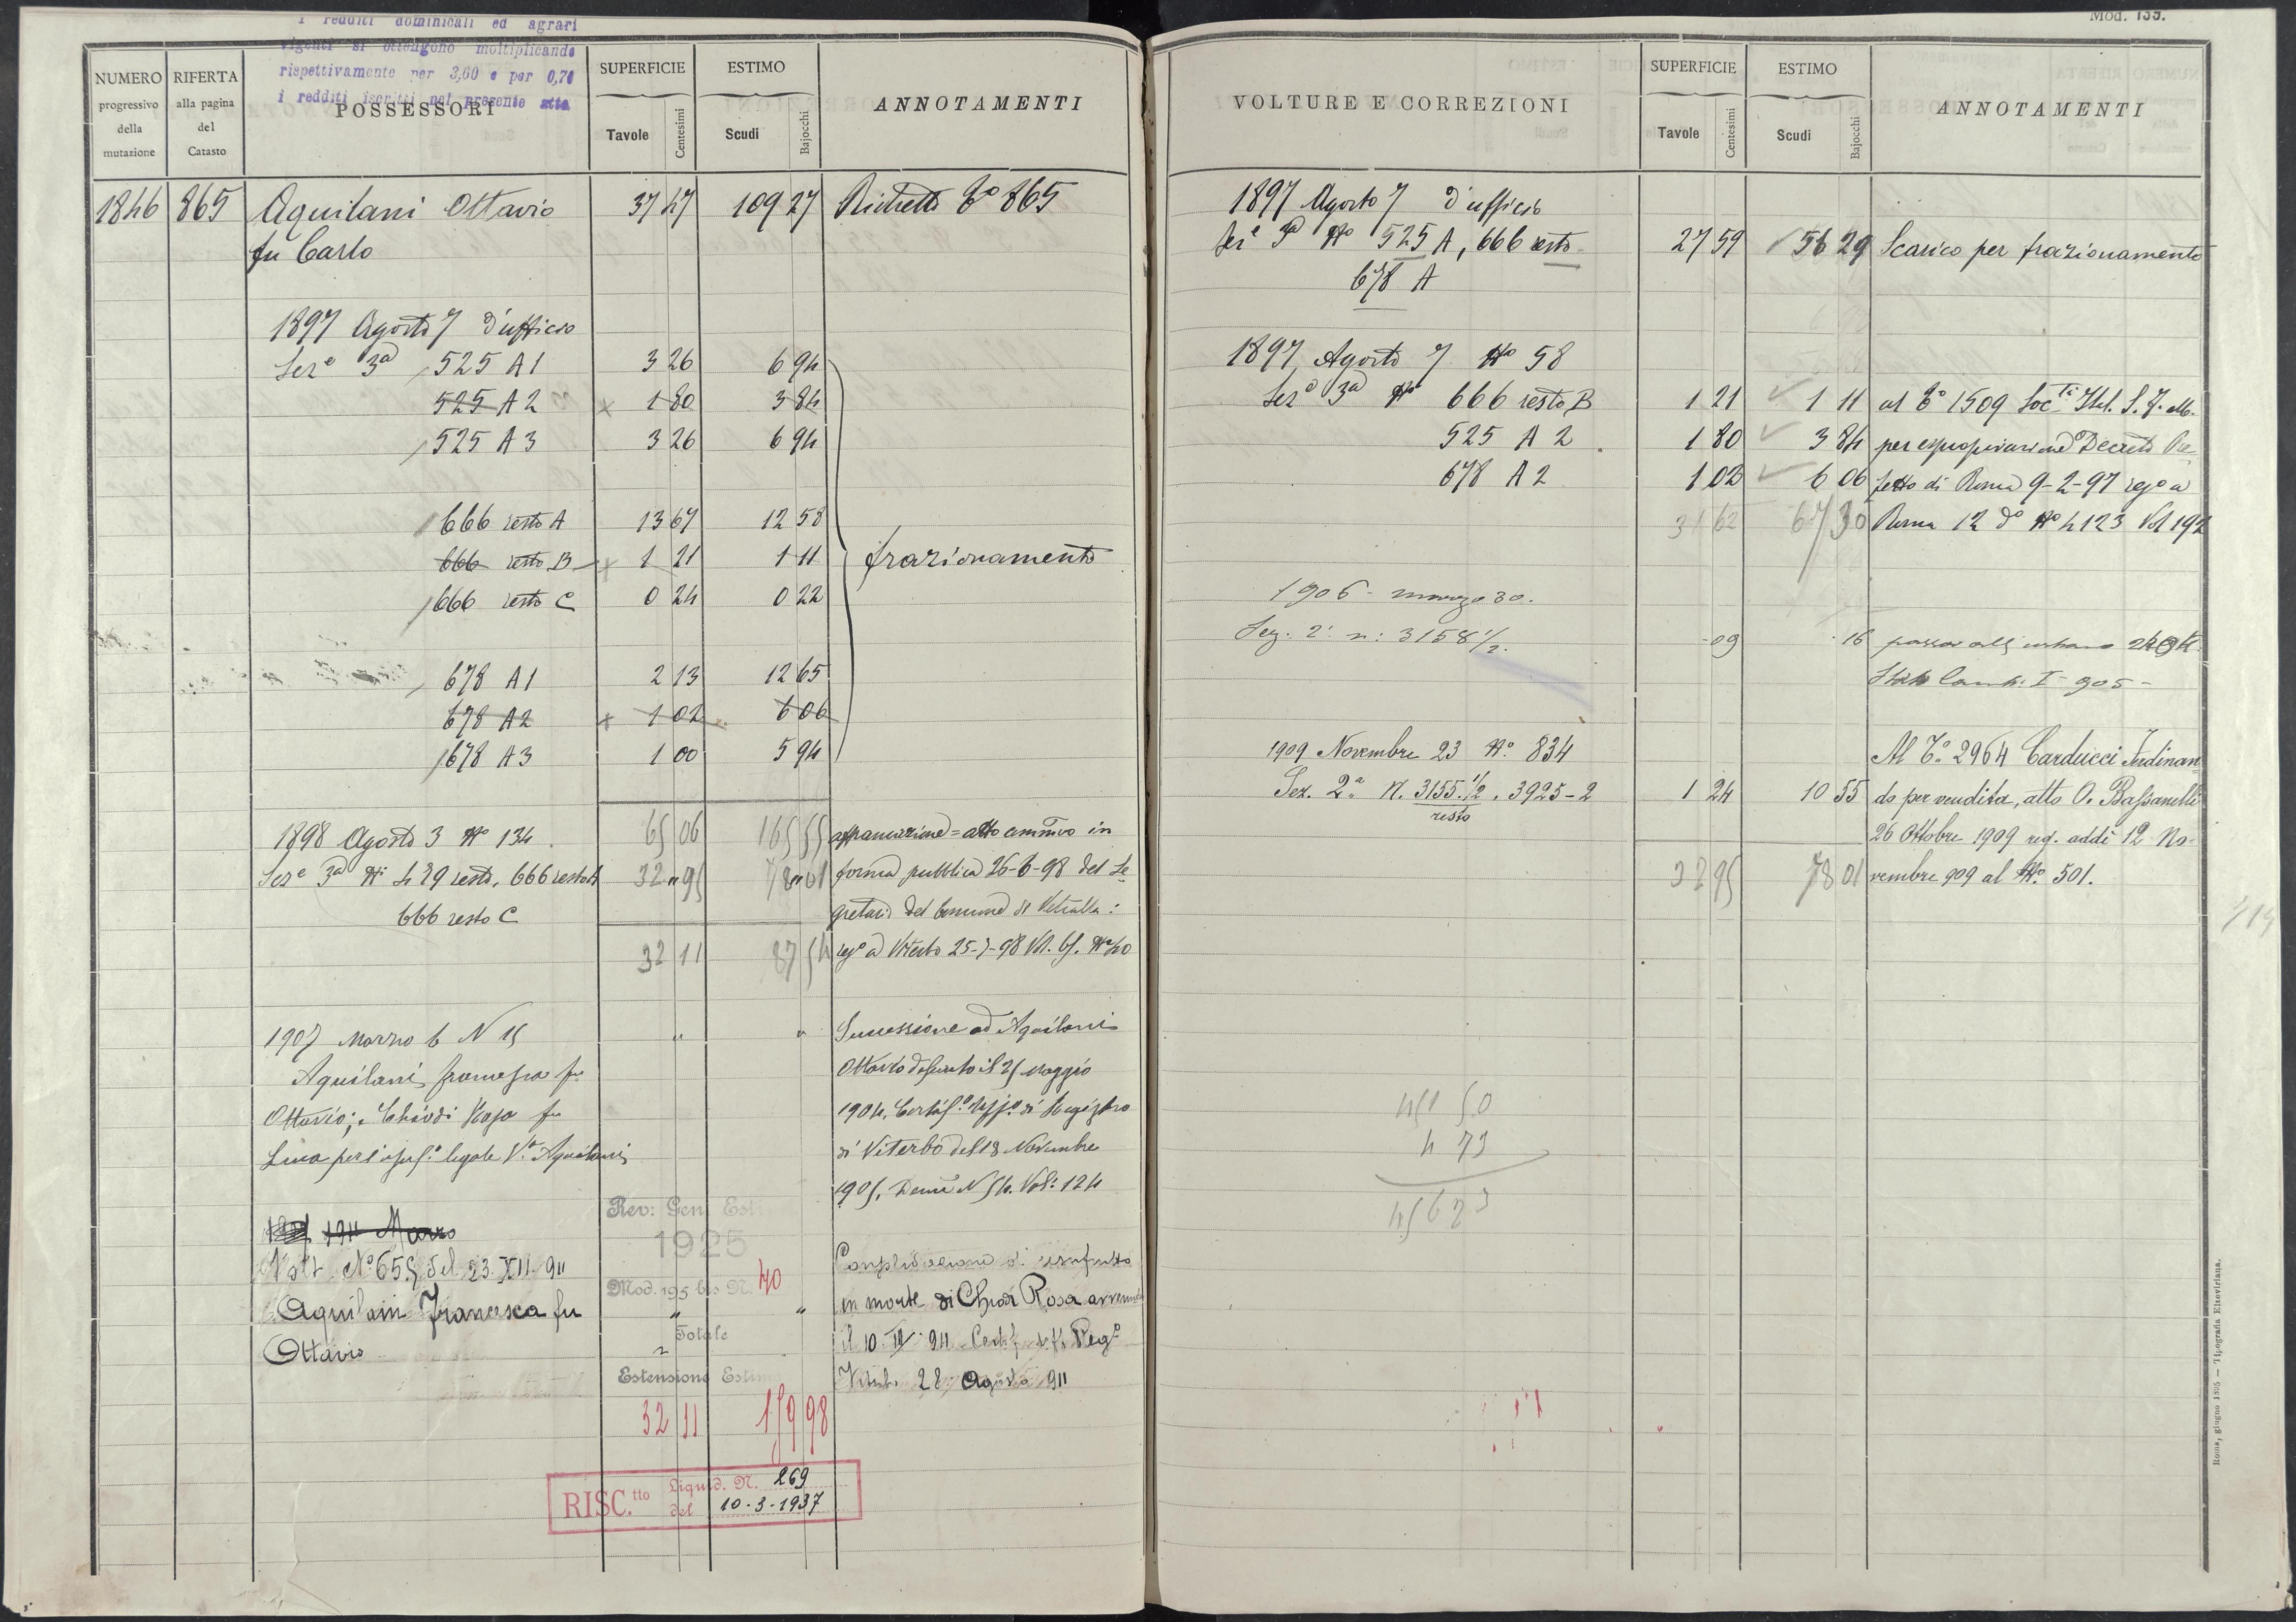 I redditi dominicali ed agrari
vigenti si ottengono moltiplicando
rispettivamente per 3,60 e per 0,70
i redditi iscritti nel presente atto
NUMERO progressivo della mutazione
RIFERTA alla pagina del Catasto
POSSESSORI
SUPERFICIE Tavole Centesimi
ESTIMO Scudi Bajocchi
ANNOTAMENTI
1846 865 Aquilani Ottavio 37 47 109 27 Richetto 865
fu Carlo
1897 Agosto 7 d'ufficio
Sez.e 3a 525 A1 3 26 6 94
525 A2 1 80 3 84
525 A3 3 26 6 94
666 resto A 13 67 12 58
666 resto B 1 21 1 11 frazionamento
666 resto C 0 24 0 22
678 A1 2 13 12 65
678 A2 1 02 6 06
678 A3 1 00 5 94
65 06 165 55
1898 Agosto 3 No 134 affrancazione = atto ammvo in
Seze 3a Ni 429 resto, 666 resto A 32 95 78 01 forma pubblica 26-6-98 del Se
666 resto C gretario del Comune di Vetralla:
32 11 87 54 rego a Viterbo 25-7-98 Vol. 65. No 40
1907 Marzo 6 N 15 " " Successione ad Aquilani
Aquilani Francesca fu Ottavio defunto il 25 Maggio
Ottavio; Chiodi Rosa fu 1904. Certifo Uffo di Registro
Luca per l'usufo legale Va Aquilani di Viterbo del 18 Novembre
1905, Denu N 54. Vol: 124
Rev: Gen Esti
1925
1911 Marzo
Volt No 655 del 23. XII. 911 Consolidazione di usufrutto
Mod. 195 bis N. 40
Aquilani Francesca fu " " in morte di Chiodi Rosa avvenuta
Totale
Ottavio
Viterbo 28 Agosto 911
Estensione Estimo
32 11 159 98
RISC.tto Liquid. N. 269
del 10-3-1937
Mod. 139.
VOLTURE E CORREZIONI
SUPERFICIE Tavole Centesimi
ESTIMO Scudi Bajocchi
ANNOTAMENTI
1897 Agosto 7 d'ufficio
Seze 3a No 525 A, 666 resto 27 59 56 29 Scarico per frazionamento
678 A
1897 Agosto 7 No 58
Seze 3a No 666 resto B 1 21 1 11 al 1509 Socta Ital. S. F. M.
525 A 2 1 80 3 84 per espropriazione Decreto Pre
678 A 2 1 02 6 06 fetto di Roma 9-2-97 rego a
31 62 67 30 Roma 12 do No 4123 Vol 192
1906 - marzo 30.
Sez. 2a n: 3158 1/2. - 09 - 16 passa all'urbano
1909 Novembre 23 No. 834 Al To. 2964 Carducci Ferdinan
Sez. 2a N. 3155.1/2 resto. 3925-2 1 24 10 55 do per vendita, atto O. Bassanelli
26 Ottobre 1909 reg. addì 12 No-
32 95 78 01 vembre 909 al No. 501.
451 50
4 73
456 23
Roma, giugno 1895 — Tipografia Elzeviriana.